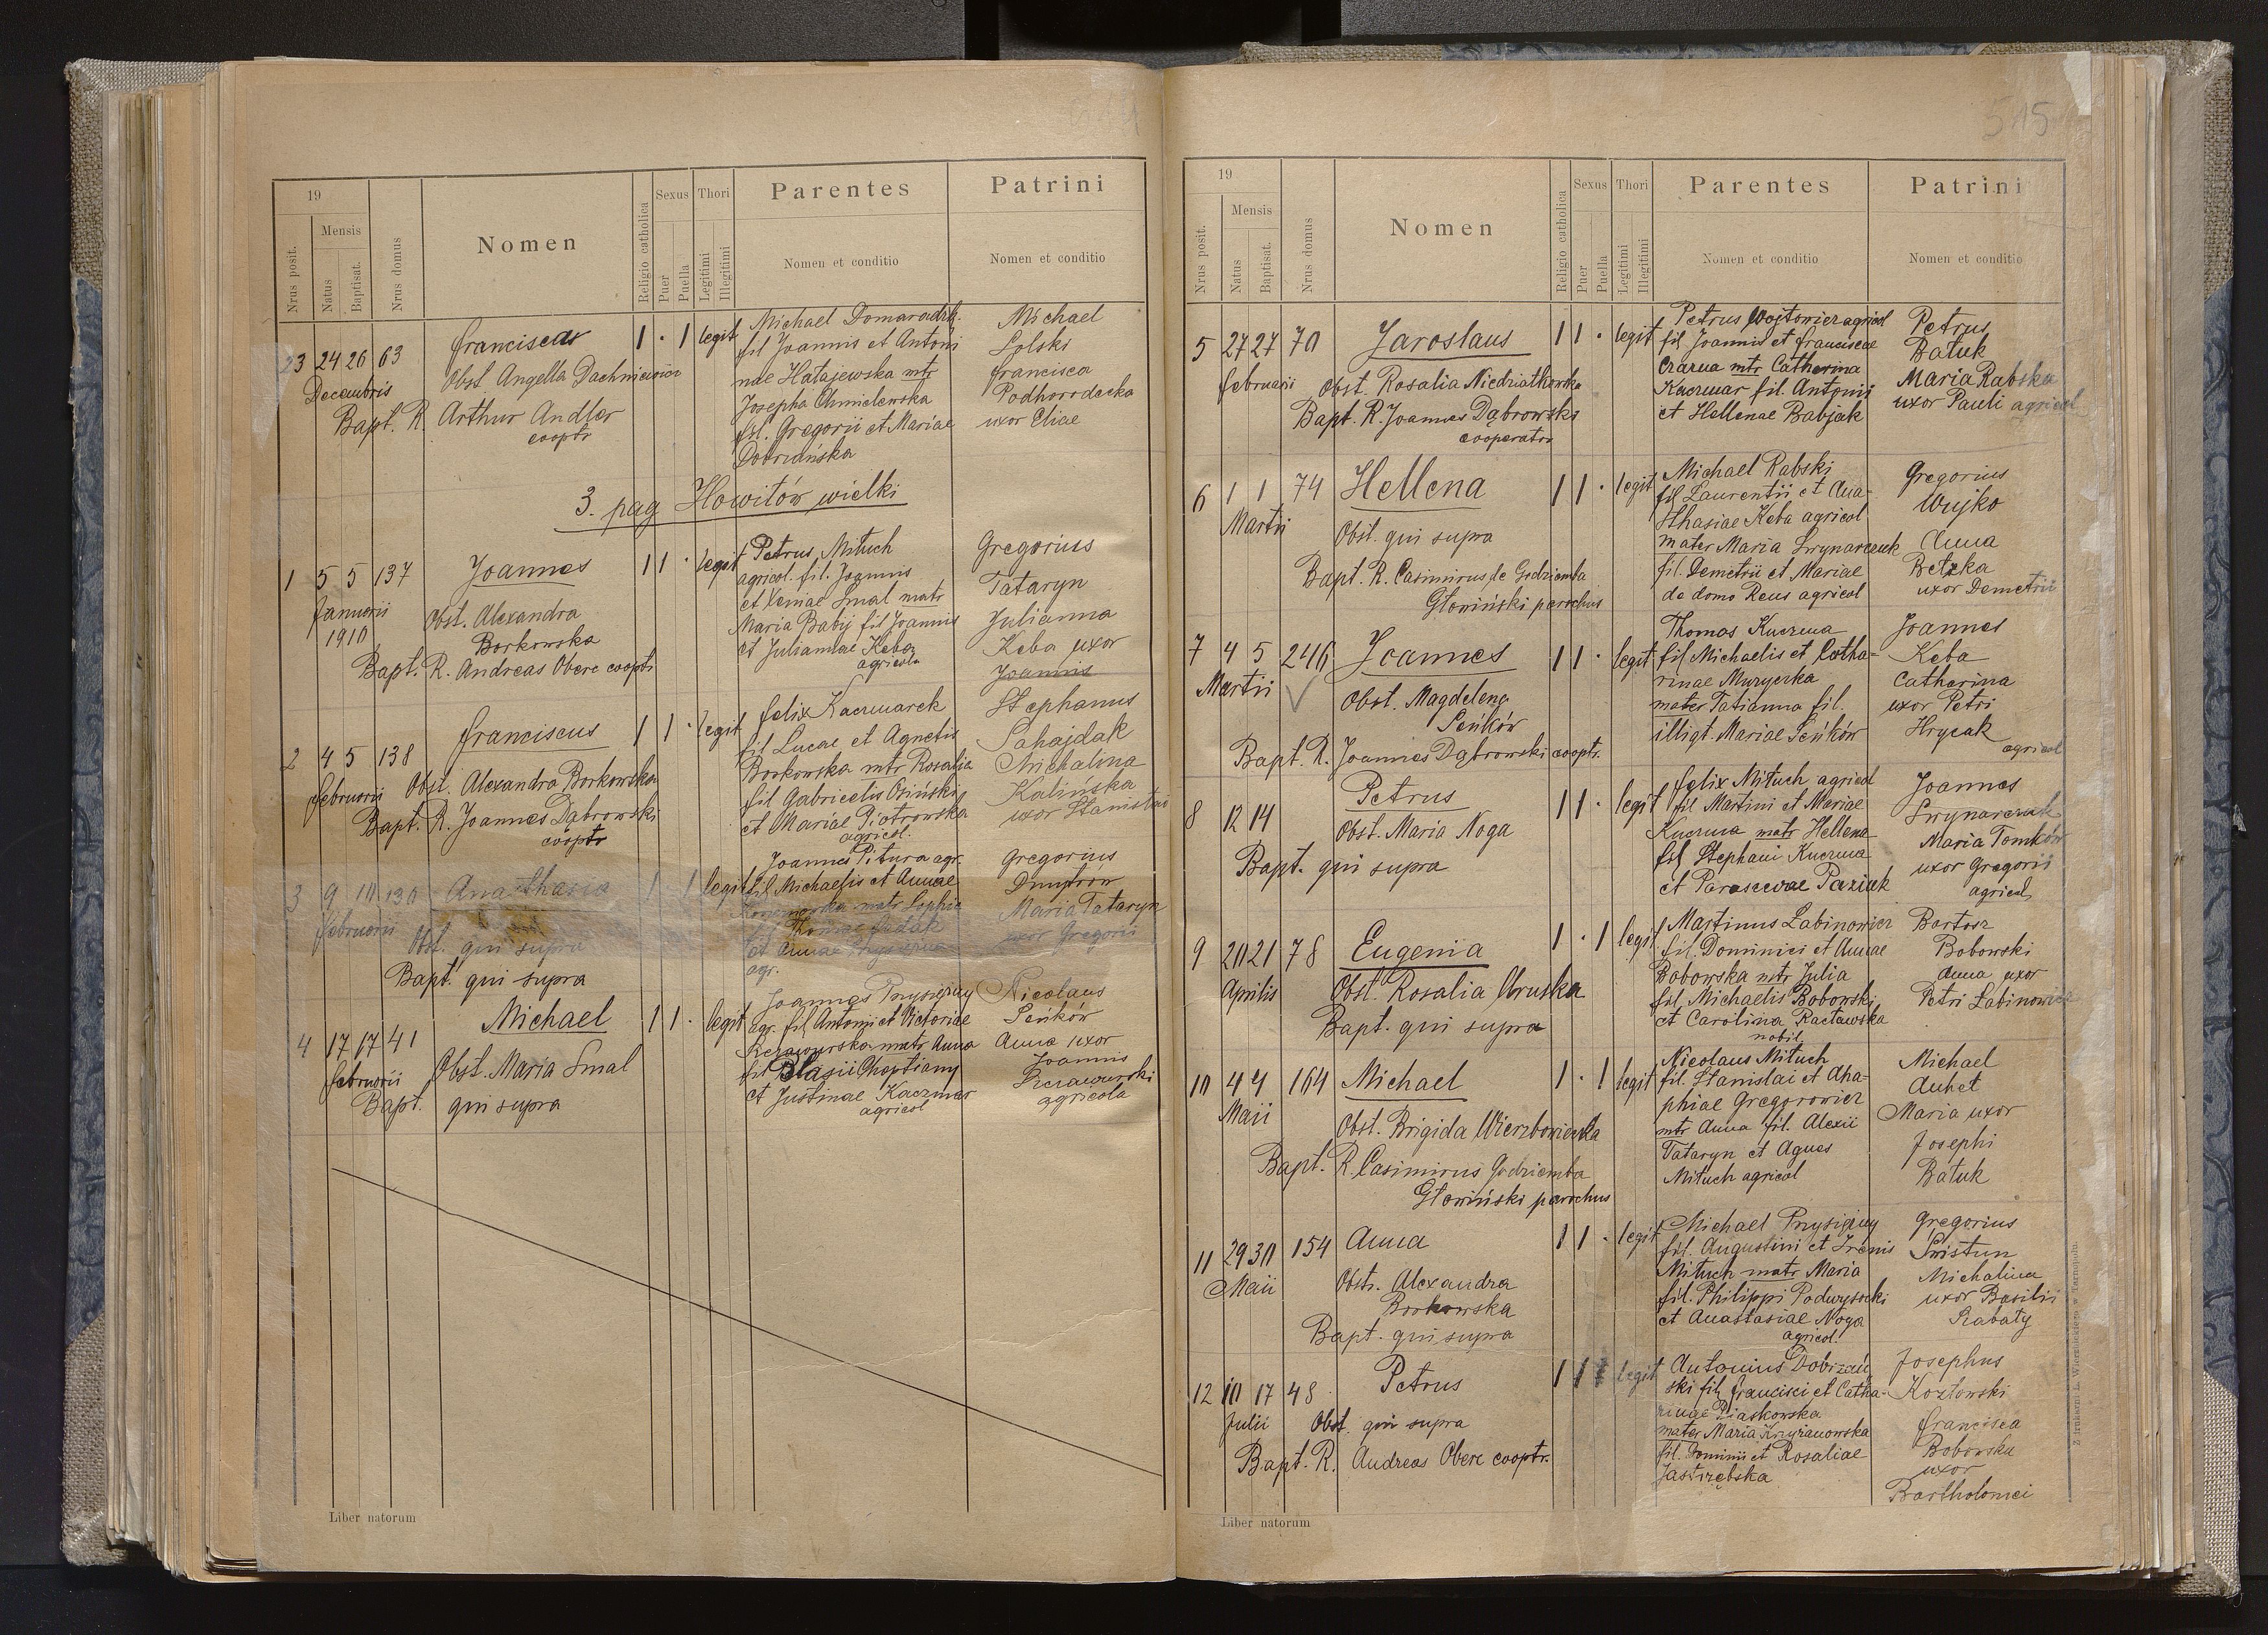 514
19
Nrus posit.
Mensis
Natus
Baptisat.
Nrus domus
Nomen
Religio catholica
Sexus
Puer
Puella
Thori
Legitimi
Illegitimi
Parentes
Nomen et conditio
Patrini
Nomen et conditio
23 24 26 63
Decembris
Francisca
Obst. Angella
Bapt. R. Arthur Andler
cooptr
1 . 1 legit
Michael Domaradzk.
fil Joannis et Antoni
nae Hatajewska mtr
Josepha Chmielewska
fil. Gregorii et Mariae
Dobrzańska
Michael
Solski
Francisca
Podhorodecka
uxor Eliae
3. pag Howitów wielki
1 5 5 137
Januarii
1910
Joannes
Obst. Alexandra
Borkowska
Bapt. R. Andreas Obere cooptr
1 1 . legit
Petrus Mituch
agricol. fil. Joannis
et Xeniae Smal matr
Maria Babij fil Joannis
et Juliannae Keba
agricola
Gregorius
Tataryn
Julianna
Keba uxor
Joannis
2 4 5 138
Februarii
Franciscus
Obst. Alexandra Borkowska
Bapt. R. Joannes Dąbrowski
cooptr
1 1 . legit
Felix Kaczmarek
fil Lucae et Agnetis
Borkowska mtr Rosalia
fil Gabrielis Osiński
et Mariae Piotrowska
agricol.
Stephanus
Sahajdak
Michalina
Kalinska
uxor Stanislai
3 9 10 130
Februarii
Anasthasia
Obst. qui supra
Bapt. qui supra
1 . 1 legit
Joannes Pitura agr.
fil Michaelis et Annae
matr Sophia
Thomae
et Annae
agr.
Gregorius
Dmytrow
Maria Tataryn
uxor Gregorii
4 17 17 41
Februarii
Michael
Obst. Maria Smal
Bapt. qui supra
1 1 . legit
Joannes Przysiężny
agr. fil Antonii et Victoriae
matr Anna
fil Blasii Choptiany
et Justinae Kaczmar
agricol
Nicolaus
Seńków
Anna uxor
Joannis
Szczawurski
agricola
Liber natorum
515
19
Nrus posit.
Mensis
Natus
Baptisat.
Nrus domus
Nomen
Religio catholica
Sexus
Puer
Puella
Thori
Legitimi
Illegitimi
Parentes
Nomen et conditio
Patrini
Nomen et conditio
5 27 27 70
Februarii
Jaroslaus
Obst. Rosalia Niedziałkowska
Bapt. R. Joannes Dąbrowski
cooperator
1 1 . legit
Petrus Wojtowicz agricol
fil Joannis et Franciscae
Czarna mtr Catherina
Kaczmar fil. Antonii
et Hellenae Babjak
Petrus
Batuk
Maria Rabska
uxor Pauli agricol
6 1 1 74
Martii
Hellena
Obst. qui supra
Bapt. R. Casimirus de Godziemba
Głowiński parochus
1 1 . legit
Michael Rabski
fil Laurentii et Ana-
sthasiae Keba agricol
mater Maria Swynarczuk
fil. Demetrii et Mariae
de domo Reus agricol
Gregorius
Wujko
Anna
Betzka
uxor Demetrii
7 4 5 246
Martii
Joannes
Obst. Magdelena
Seńków
Bapt. R. Joannes Dąbrowski cooptr.
1 1 . legit
Thomas Kuczma
fil Michaelis et Catha-
rinae Muryczka
mater Tatianna fil.
illigt. Mariae Seńków
Joannes
Keba
Catherina
uxor Petri
Hrycak
agricol
8 12 14
Petrus
Obst. Maria Noga
Bapt. qui supra
1 1 . legit
Felix Mituch agricol
fil Martini et Mariae
Kuczma matr Hellena
fil Stephani Kuczma
et Parascevae Paziuk
Joannes
Swynarczuk
Maria Tomków
uxor Gregorii
agricol
9 20 21 78
Aprilis
Eugenia
Obst. Rosalia Uruska
Bapt. qui supra
1 . 1 legit
Martinus Łabinowicz
fil. Dominici et Annae
Bobowska mtr Julia
fil. Michaelis Bobowski
et Carolina Racławska
nobil
Bartosz
Bobowski
Anna uxor
Petri Łabinowicz
10 4 4 164
Maii
Michael
Obst. Brigida Wierzbowiecka
Bapt. R. Casimirus Godziemba
Głowiński parochus
1 . 1 legit
Nicolaus Mituch
fil. Stanislai et Aha-
phiae Gregorowicz
mtr Anna fil. Alexii
Tataryn et Agnes
Mituch agricol
Michael
Auhet
Maria uxor
Josephi
Batuk
11 29 30 154
Maii
Anna
Obstr. Alexandra
Borkowska
Bapt. qui supra
1 1 . legit
Michael Przysiężny
fil. Augustini et Irenis
Mituch matr Maria
fil. Philippi Podwysocki
et Anastasiae Noga
agricol.
Gregorius
Swistun
Michalina
uxor Basilii
Rabaty
12 10 17 48
Julii
Petrus
Obst. qui supra
Bapt. R. Andreas Obere cooptr.
1 1 legit
Antonius Dobrzań
ski fil Francisci et Catha-
rinae Piaskowska
mater Maria Krzyżanowska
fil. Dominii et Rosaliae
Jastrzębska
Josephus
Kozłowski
Francisca
Bobowska
uxor
Bartholomei
Liber natorum
Z drukarni L. Wierzbickiego w Tarnopolu.